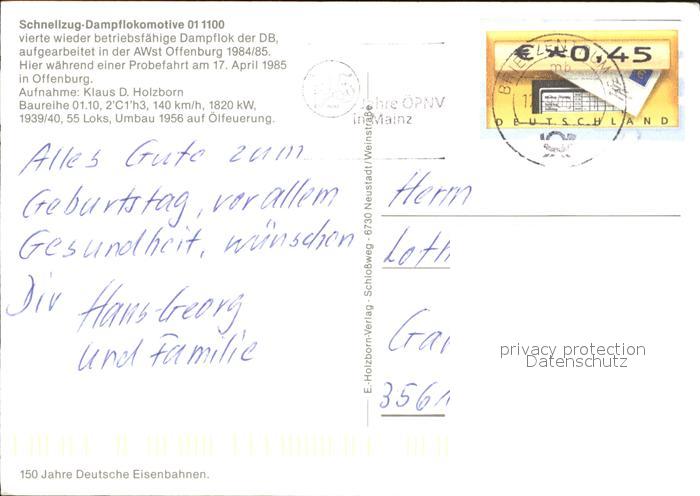 Schnellzug-Dampflokomotive 01 1100
vierte wieder betriebsfähige Dampflok der DB,
aufgearbeitet in der AWst Offenburg 1984/85.
Hier während einer Probefahrt am 17. April 1985
in Offenburg.
Aufnahme: Klaus D. Holzborn
Baureihe 01.10, 2'C1'h3, 140 km/h, 1820 kW,
1939/40, 55 Loks, Umbau 1956 auf Ölfeuerung.
Jahre ÖPNV
in Mainz
€ *0,45
BRIEFZENTRUM
mb
DEUTSCHLAND
Alles Gute zum
Geburtstag, vor allem
Gesundheit, wünschen
Dir Hans-Georg
und Familie
E.-Holzborn-Verlag - Schloßweg - 6730 Neustadt/Weinstraße
Herrn
Loth
Gar
356
privacy protection
Datenschutz
150 Jahre Deutsche Eisenbahnen.